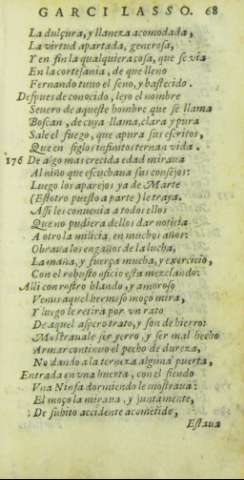 GARCI LASSO. 68
La dulçura, y llaneza acomodada,
La virtud apartada, generosa,
Y en fin la qualquiera cosa, que se via
En la cortesania, de que lleno
Fernando tuuo el seno, y bastecido.
Despues de conocido, leyo el nombre
Seuero de aqueste hombre que se llama
Boscan, de cuya llama, clara y pura
Sale el fuego, que apura sus escritos,
Que en siglos infinitos ternan vida.
176 De algo mas crecida edad miraua
Al niño que escuchaua sus consejos:
Luego los aparejos ya de Marte
(Estotro puesto a parte) le traya.
Assi les conuenia a todos ellos
Que no pudiera dellos dar noticia
A otro la milicia, en muchos años:
Obraua los engaños de la lucha,
La maña, y fuerça mucha, y exercicio,
Con el robusto oficio esta mezclando:
Alli con rostro blando, y amoroso
Venus aquel hermoso moço mira,
Y luego le retira por vn rato
De aquel aspero trato, y son de hierro:
Mostrauale ser yerro, y ser mal hecho
Armar continuo el pecho de dureza,
No dando a la terneza alguna puerta,
Entrada en vna huerta, con el siendo
Vna Ninfa dormiendo le mostraua:
El moço la miraua, y juntamente,
De subito accidente acometido,
Estaua